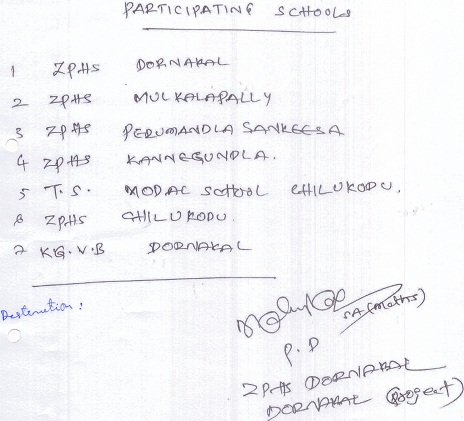 PARTICIPATING SCHOOLS
1 ZPHS DORNAKAL
2 ZPHS MULKALAPALLY
3 ZPHS PERUMANDLA SANKEESA
4 ZPHS KANNEGUNDLA.
5 T.S. MODAL SCHOOL CHILUKODU.
6 ZPHS CHILUKODU.
7 KG.V.B DORNAKAL
SA (Maths)
P.D
ZPHS DORNAKAL
DORNAKAL (Project)